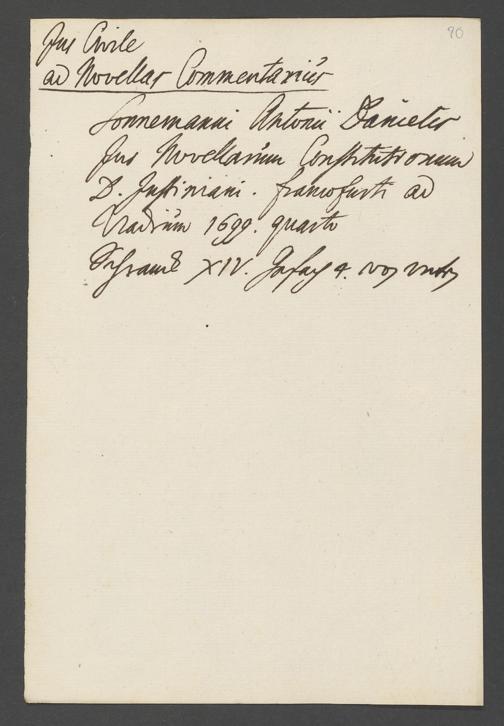 90
Jus Civile
ad Novellas Commentarius
Sonnemanni Antonii Danielis
Jus Novellarum Constitutionum
D. Justiniani. francofurti ad
Viadrum 1699. quarto
Schranck XIV. 4. von unten